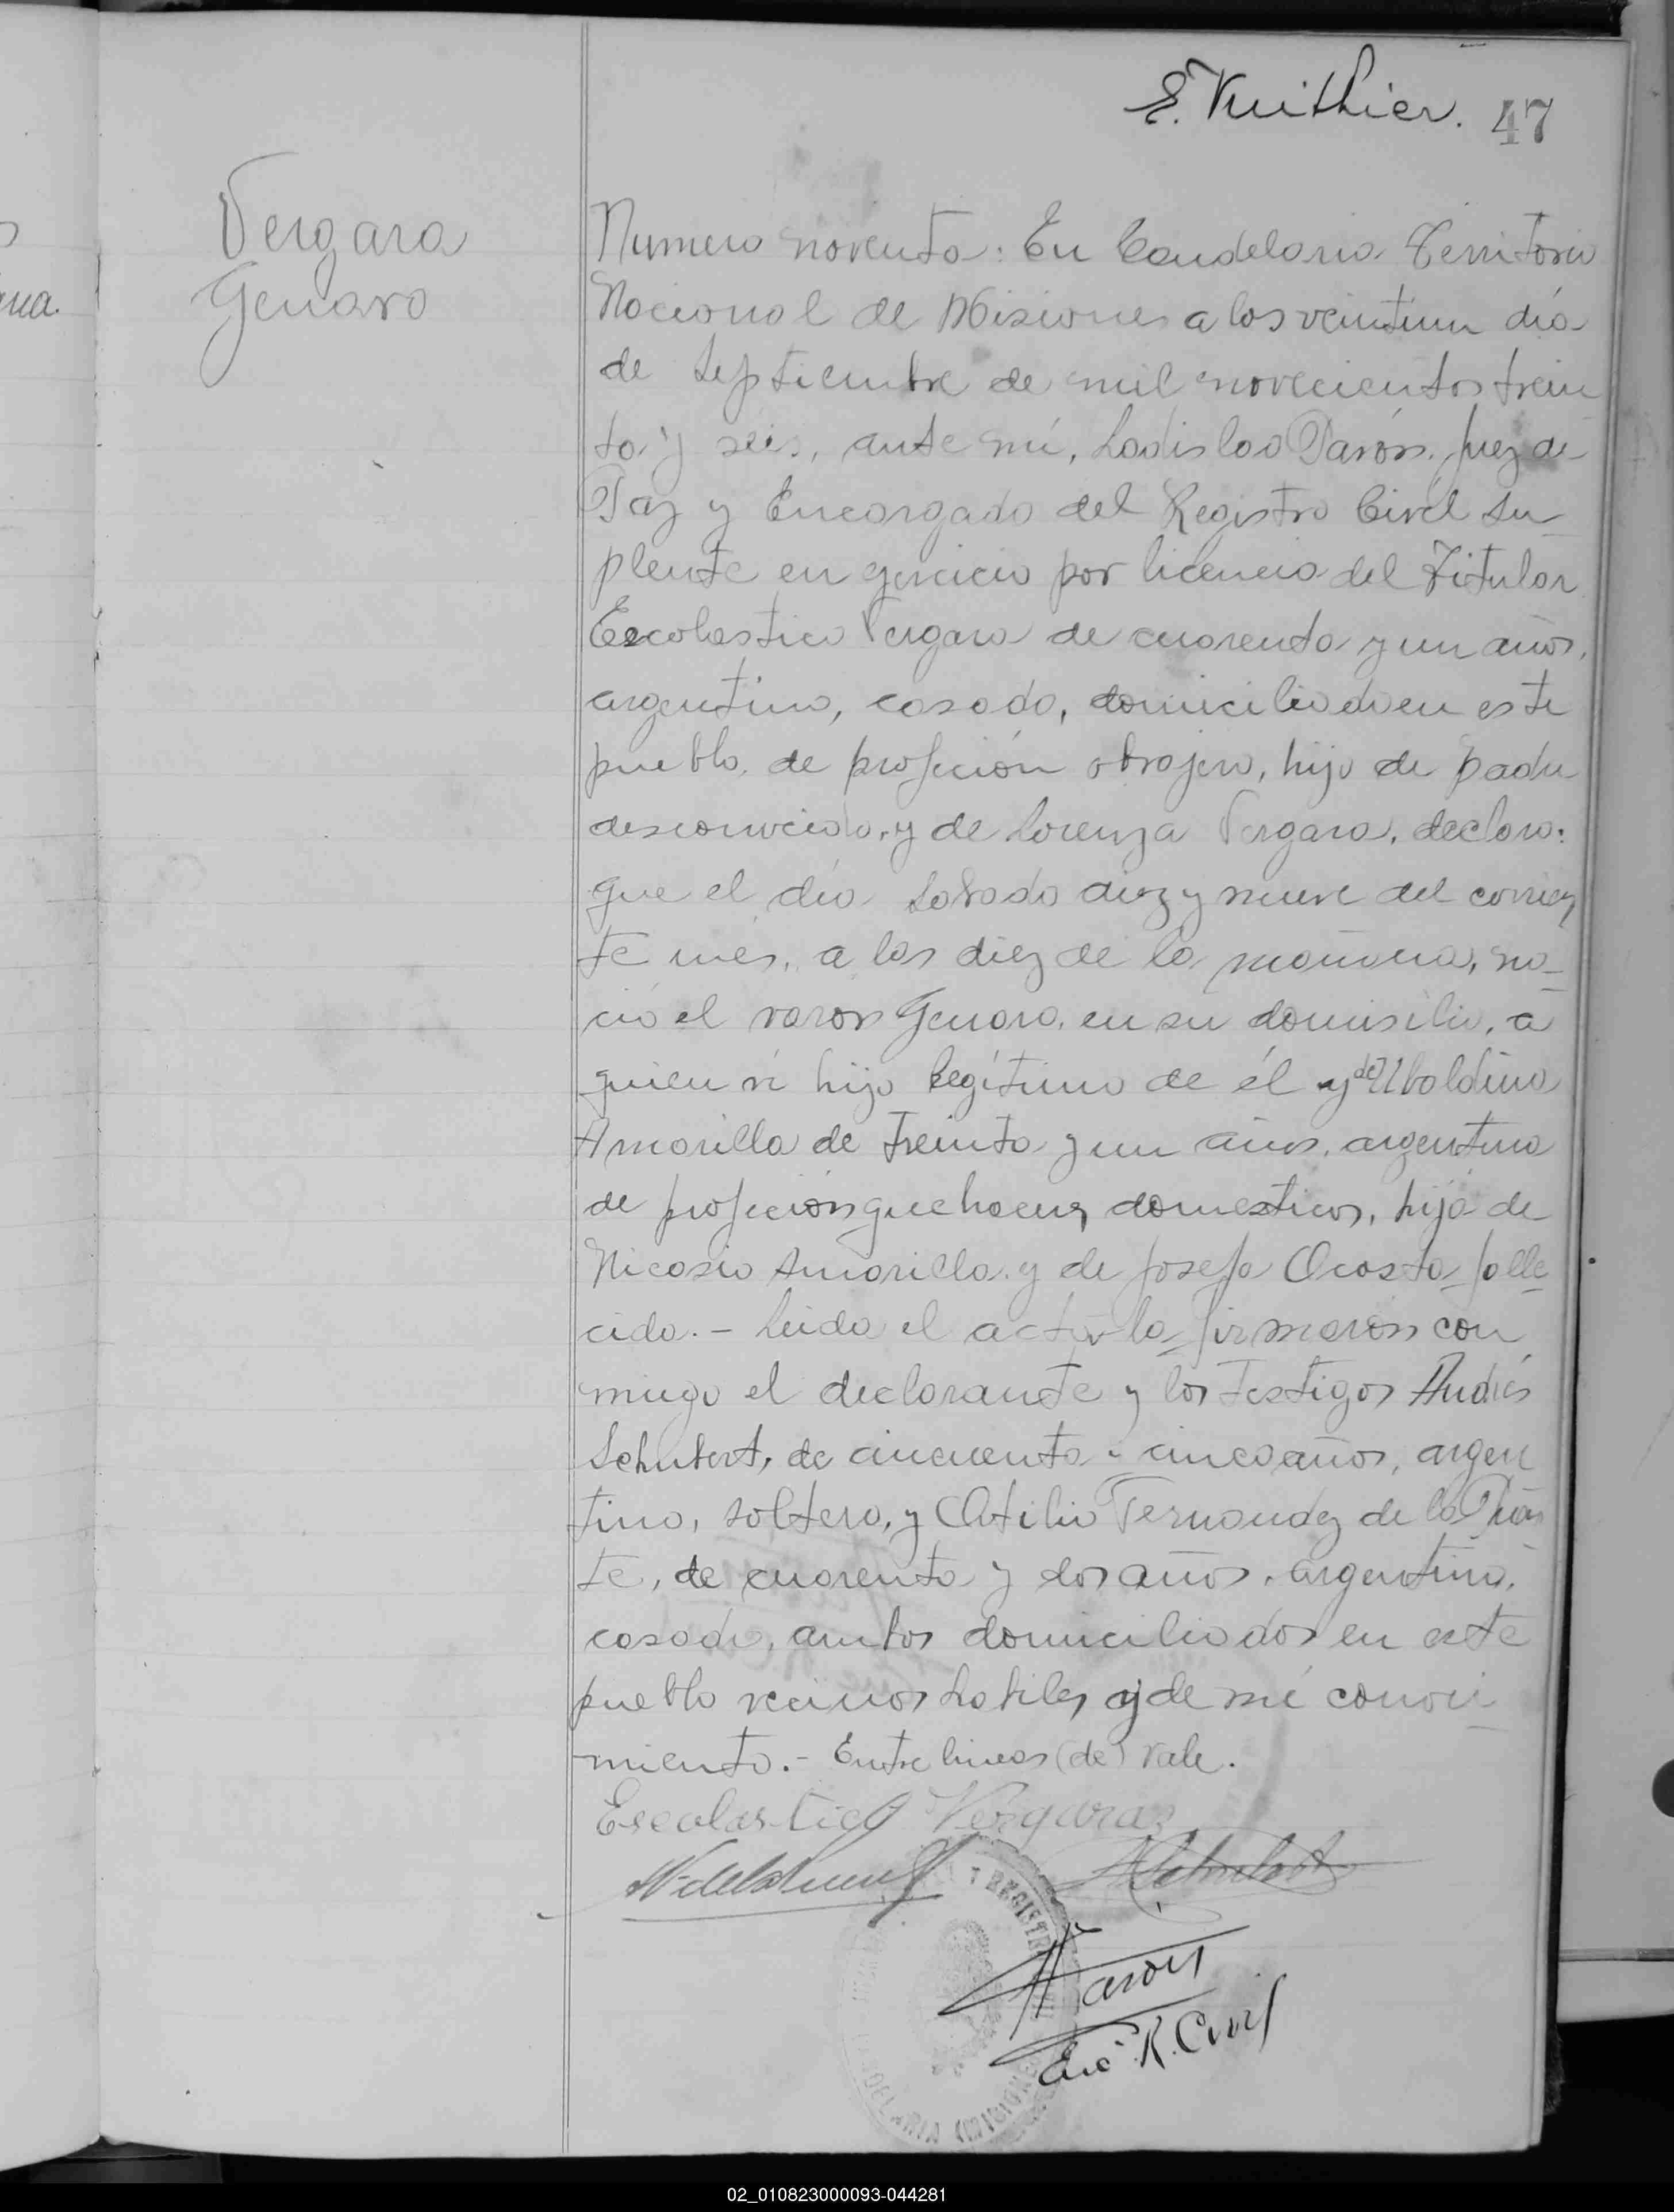 E. Vuithier. 47
Vergara
Genaro
Numero noventa: En Candelaria Territorio
Nacional de Misiones a los veintiun día
de Septiembre de mil novecientos trein
ta y seis, ante mí, Ladislao Parón, Juez de
Paz y Encargado del Registro Civil Su-
plente en ejercicio por licencia del Titular
Escolastico Vergara de cuarenta y un años,
argentino, casado, domiciliado en este
pueblo, de profeción obrajero, hijo de padre
desconocido, y de Lorenza Vergara, declaro:
que el día Sabado diez y nueve del corrien
te mes, a las diez de la mañana, na-
ció el varon Genaro, en su domisilio, a
quien ví hijo legítimo de él y de Ubaldina
Amarilla de treinta y un años, argentina
de profeción quehacers domesticos, hija de
Nicasio Amarilla y de Josefa Acosta falle-
cida. - Leida el acta la firmaron con
migo el declarante y los testigos Andrés
Schubert, de cincuenta y cinco años, argen
tino, soltero, y Atilio Fernandez de la Puen
te, de cuarenta y dos años, argentino,
casado, ambos domiciliados en este
pueblo vecinos habiles y de mi conoci
miento. - Entre lineas (de) vale.
Escolastico Vergara
AF de la Puente
ASchubert
Parón
Enc. R. Civil
REGISTRO
CANDELARIA (MISIONES)
02_010823000093-044281